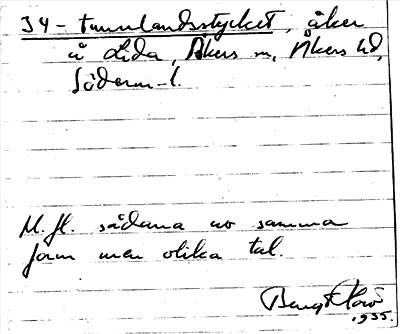 34-tunnlandsstycket, åker
å Lida, Åkers sn, Åkers hd,
Söderm-l.
M.fl. sådana av samma
form men olika tal.
Bengt
1935.